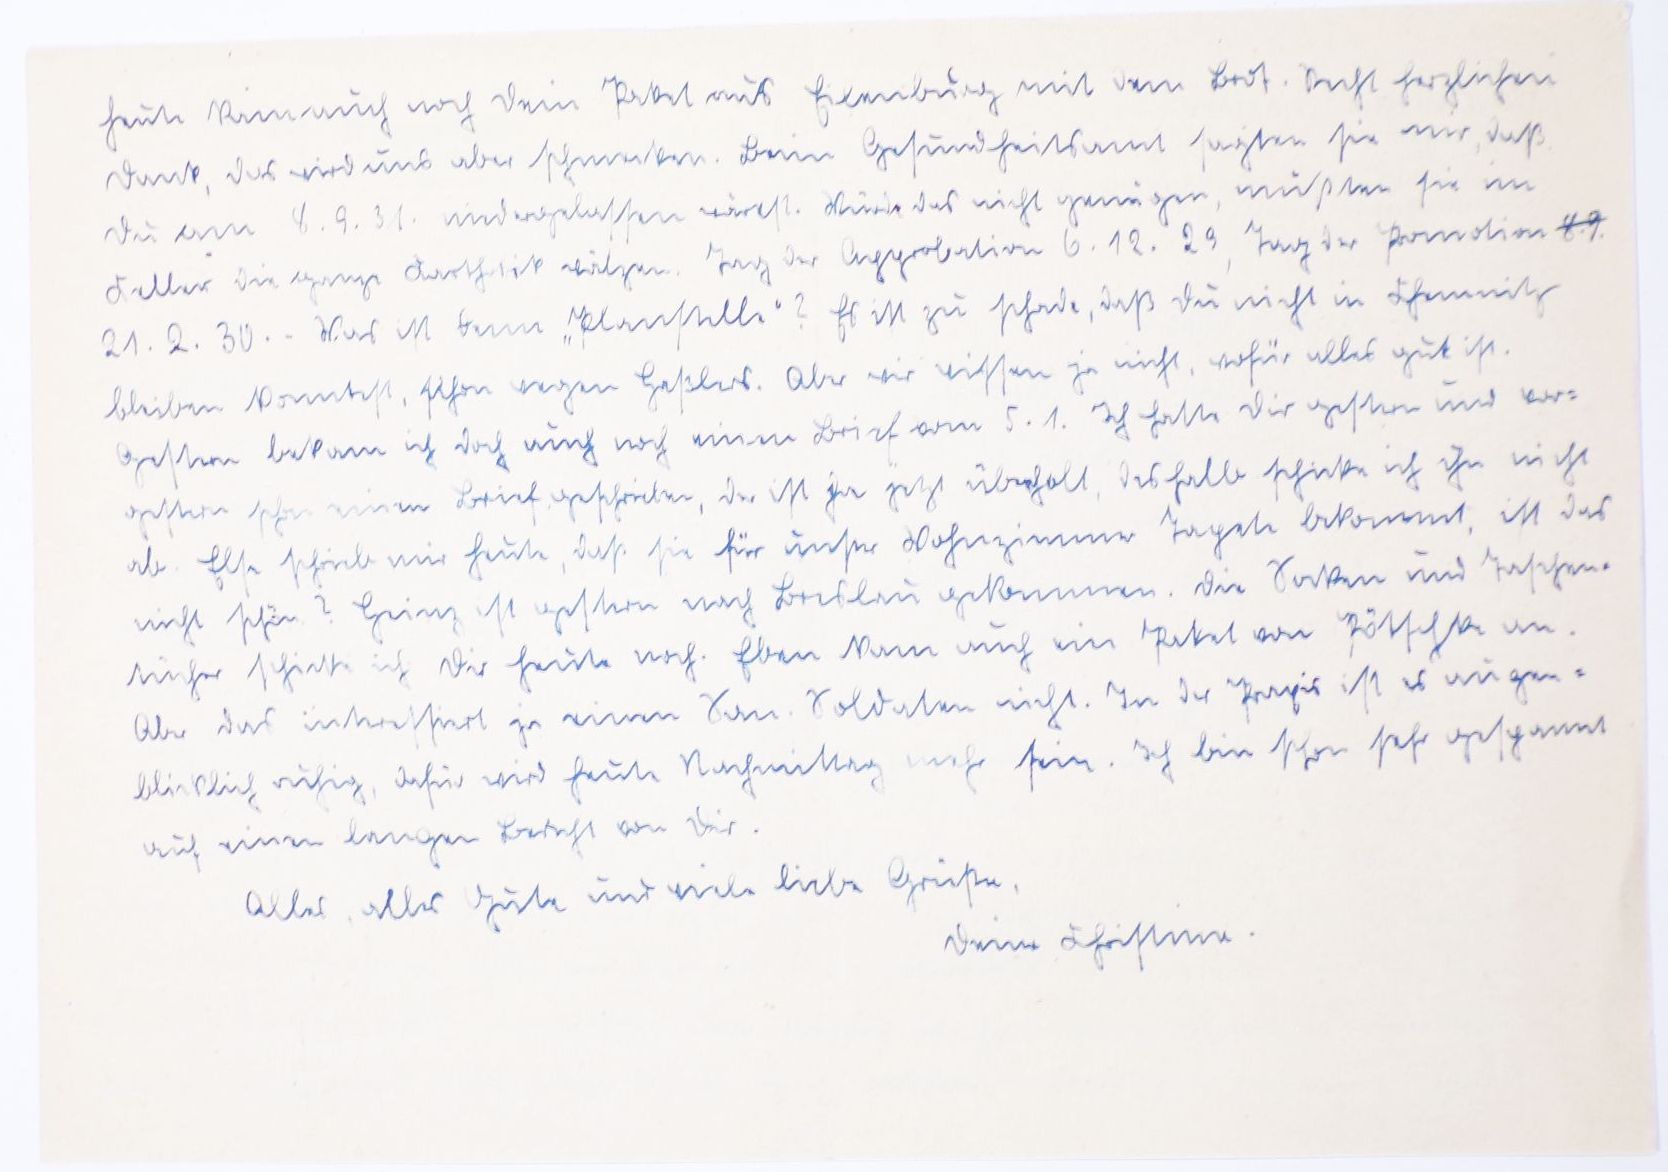 heute kam auch noch Dein Paket aus Eilenburg mit dem Brot. Recht herzlichen
Dank, das wird uns aber schmecken. Beim Gesundheitsamt sagten sie mir, daß
Du am 8.9.31. niedergelassen wärest. Würde das nicht genügen, müßten sie im
Keller die ganze Karthotik wälzen. Tag der Approbation 6.12.29, Tag der Promotion 8.9.
21.2.30. - Was ist denn „Planstelle“? Es ist zu schade, daß Du nicht in Chemnitz
bleiben konntest, schon wegen Geßlers. Aber wir wissen ja nicht, wofür alles gut ist.
Gestern bekam ich doch auch noch einen Brief vom 5.1. Ich hatte Dir gestern und vor=
gestern schon einen Brief geschrieben, der ist ja jetzt überholt, deshalb schicke ich ihn nicht
ab. Else schrieb mir heute, daß sie für unser Wohnzimmer Tapete bekommt, ist das
nicht schön? Heinz ist gestern nach Breslau gekommen. Die Socken und Taschen=
tücher schicke ich Dir heute noch. Eben kam auch ein Paket von Pötschke an.
Aber das intressiert ja einen San. Soldaten nicht. In der Praxis ist es augen=
blicklich ruhig, dafür wird heute Nachmittag mehr sein. Ich bin schon sehr gespannt
auf einen langen Bericht von Dir.
Alles, alles Gute und viele liebe Grüße,
Deine Christine.